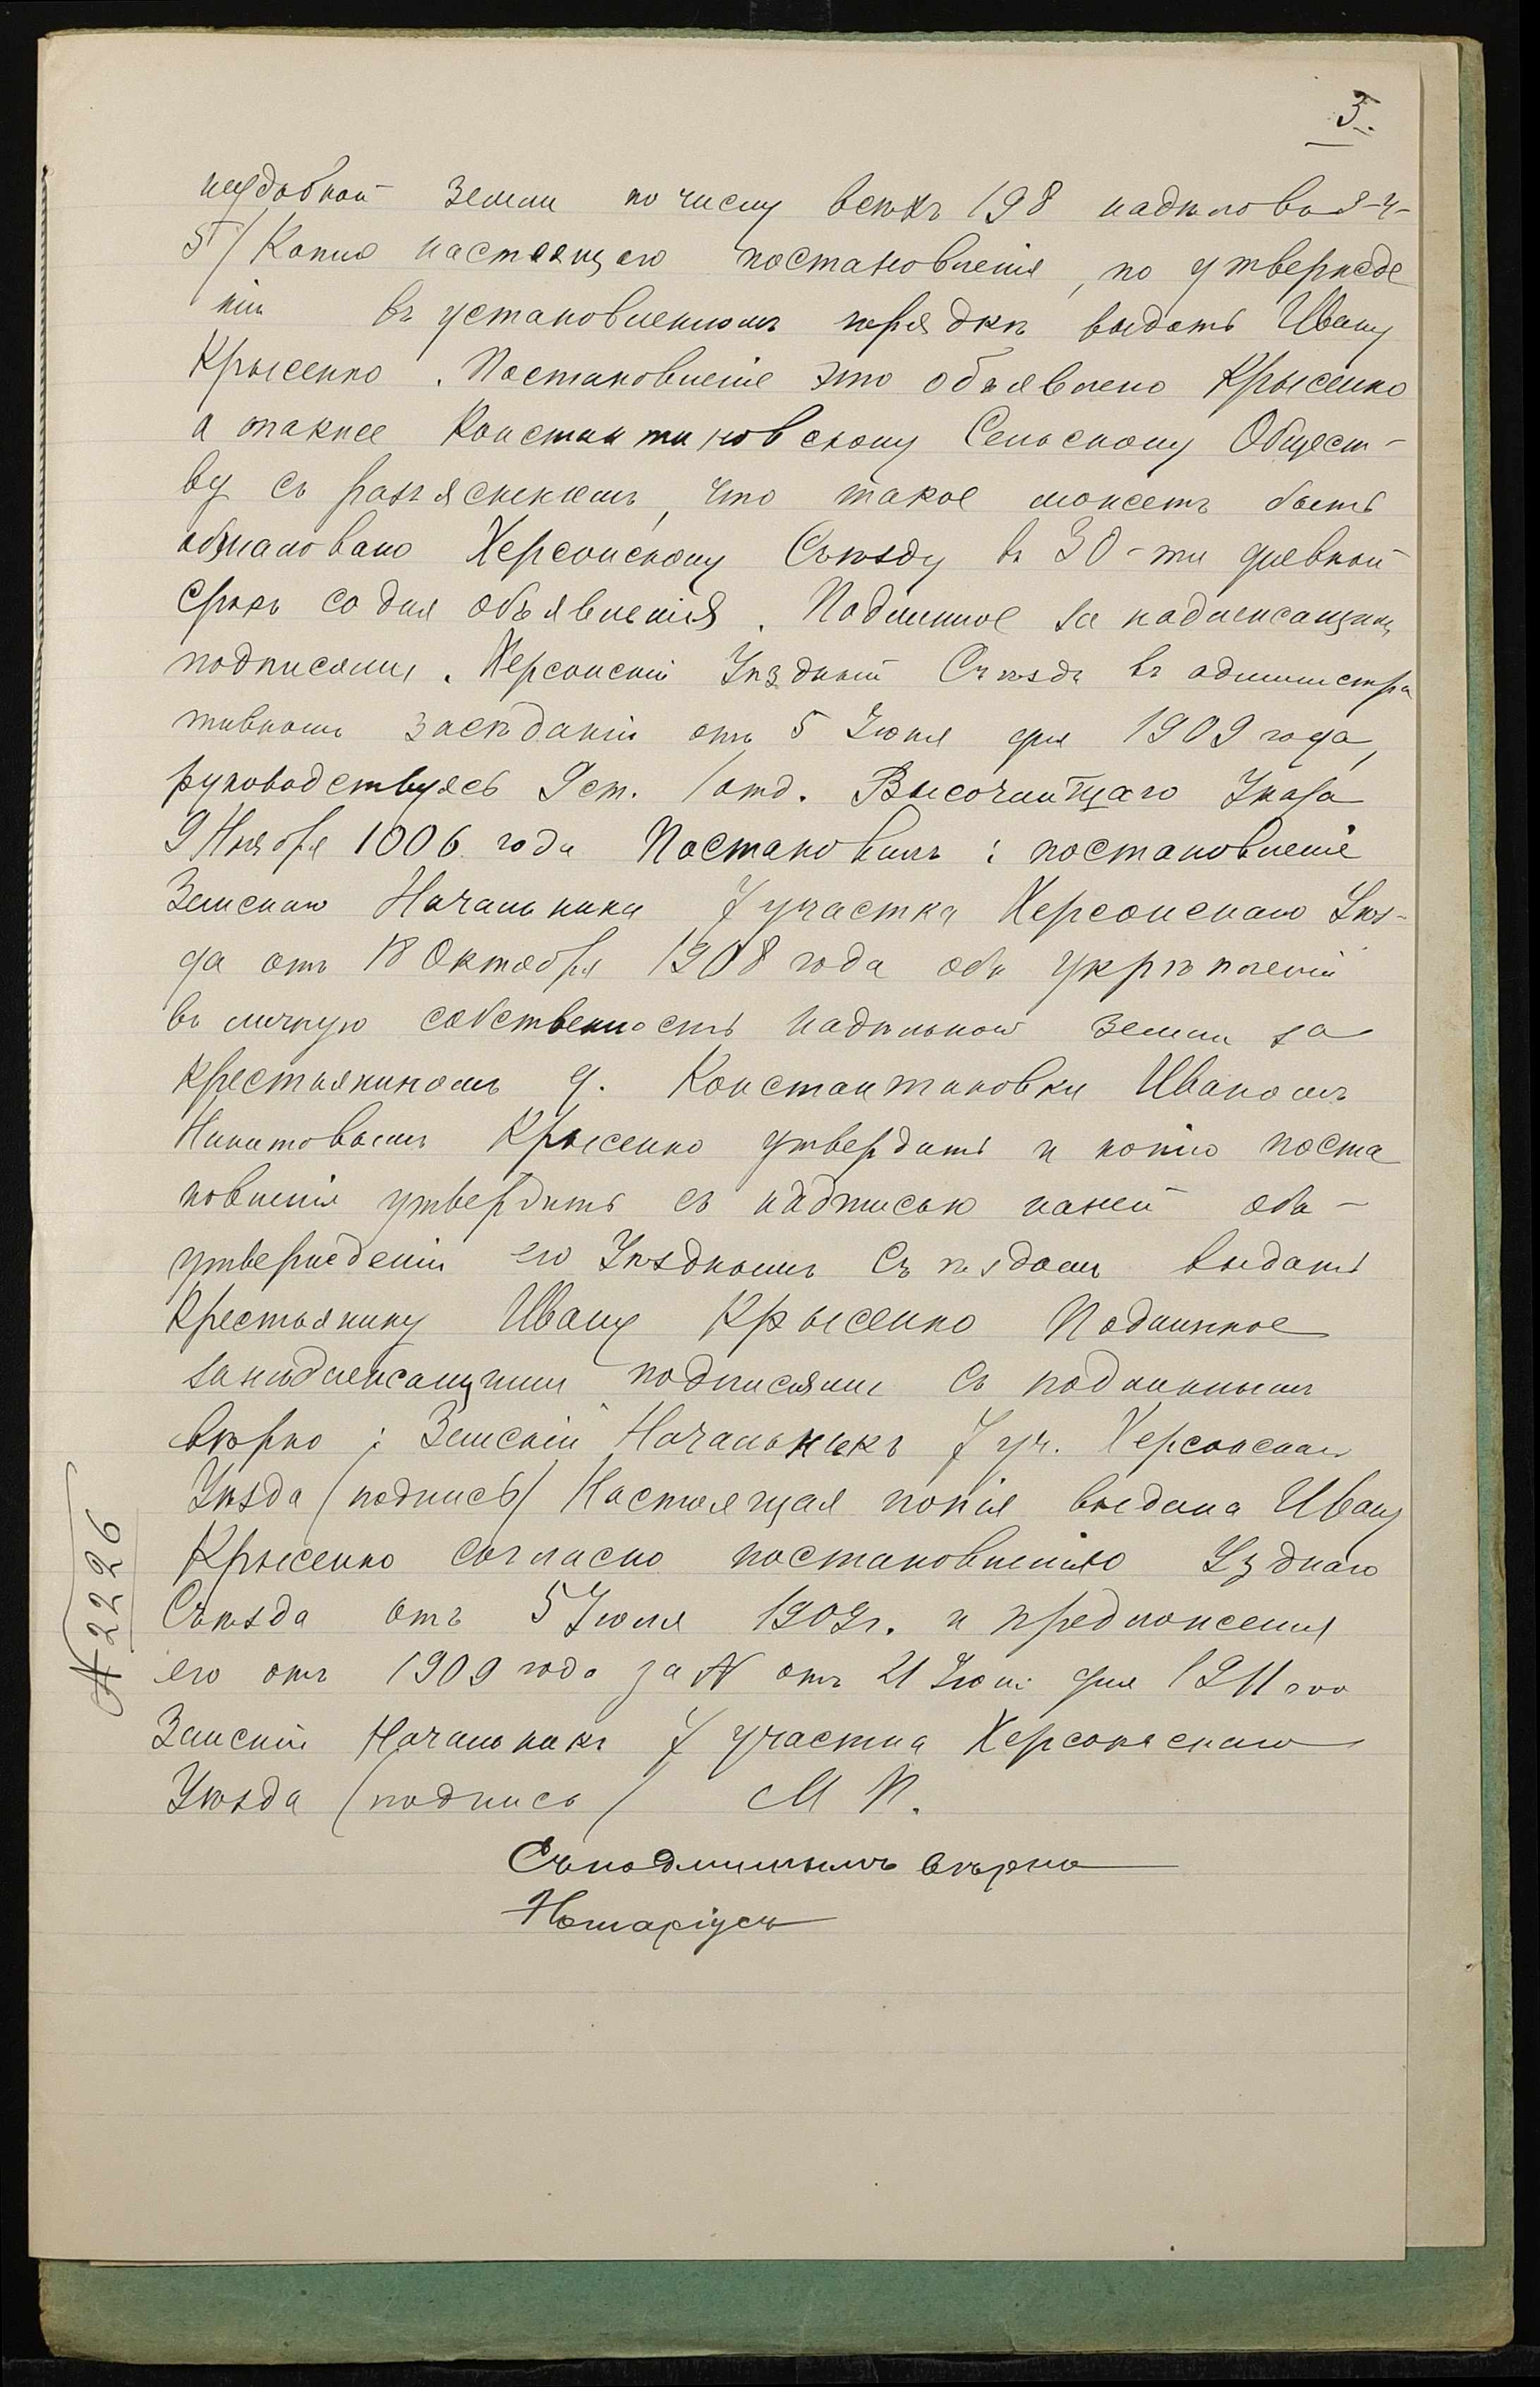 3.
неудобной земли по числу всѣхъ 198 надѣловъ
5/ Копію настоящаго постановленія, по утвержде
ніи въ установленномъ порядкѣ выдать Ивану
Крысенко. Постановленіе это объявлено Крысенко
а также Константиновскому Сельскому Общест-
ву съ разъясненіемъ, что такое можетъ быть
обжаловано Херсонскому Съѣзду въ 30-ти дневной
срокъ со дня объявленія. Подлинное за надлежащими
подписями. Херсонскій Уѣздный Съѣздъ въ администра
тивномъ засѣданіи отъ 5 Іюня дня 1909 года,
руководствуясь 9 ст. 1 отд. Высочайшаго Указа
9 Ноября 1006 года Постановилъ: постановленіе
Земскаго Начальника 7 участка Херсонскаго Уѣз-
да отъ 18 Октября 1908 года объ укрѣпленіи
въ личную собственность надѣльной земли за
крестьяниномъ д. Константиновки Иваномъ
Никитовымъ Крысенко утвердить и копію поста
новленія утвердить съ надписью на ней объ-
утвержденіи его Уѣзднымъ Съѣздомъ выдать
Крестьянину Ивану Крысенко Подлинное
за надлежащими подписями съ подлиннымъ
вѣрно: Земскій Начальникъ 7 уч. Херсонскаго
Уѣзда /подпись/ Настоящая копія выдана Ивану
Крысенко согласно постановленію Уѣзднаго
Съѣзда отъ 5 Іюня 1909 г. и предложенія
его отъ 1909 года за N отъ 21 Іюня дня 1911 го
Земскій Начальникъ 7 участка Херсонскаго
Уѣзда /подпись/ М П.
Съ подлиннымъ вѣрно
Нотаріусъ
N 2226